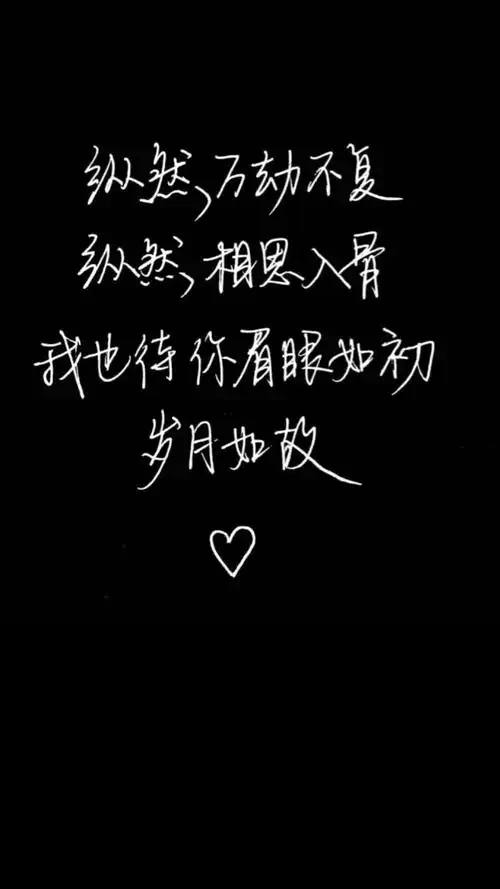 纵然,万劫不复
纵然,相思入骨
我也待你眉眼如初
岁月如故